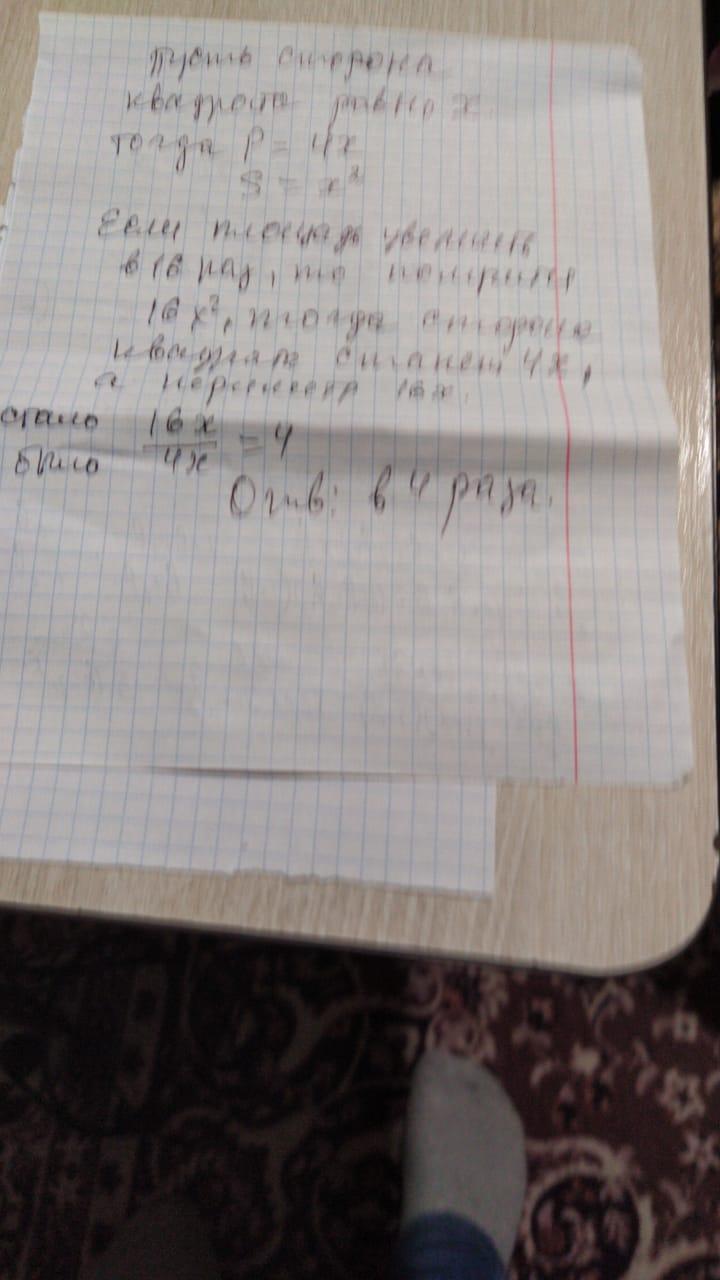 Пусть сторона
квадрата равно x.
тогда P = 4x
S = x²
Если площадь увеличить
в 16 раз, то получится
16x², тогда сторона
квадрата станет 4x,
а периметр 16x.
стало 16x
было 4x = 4
Отв: в 4 раза.